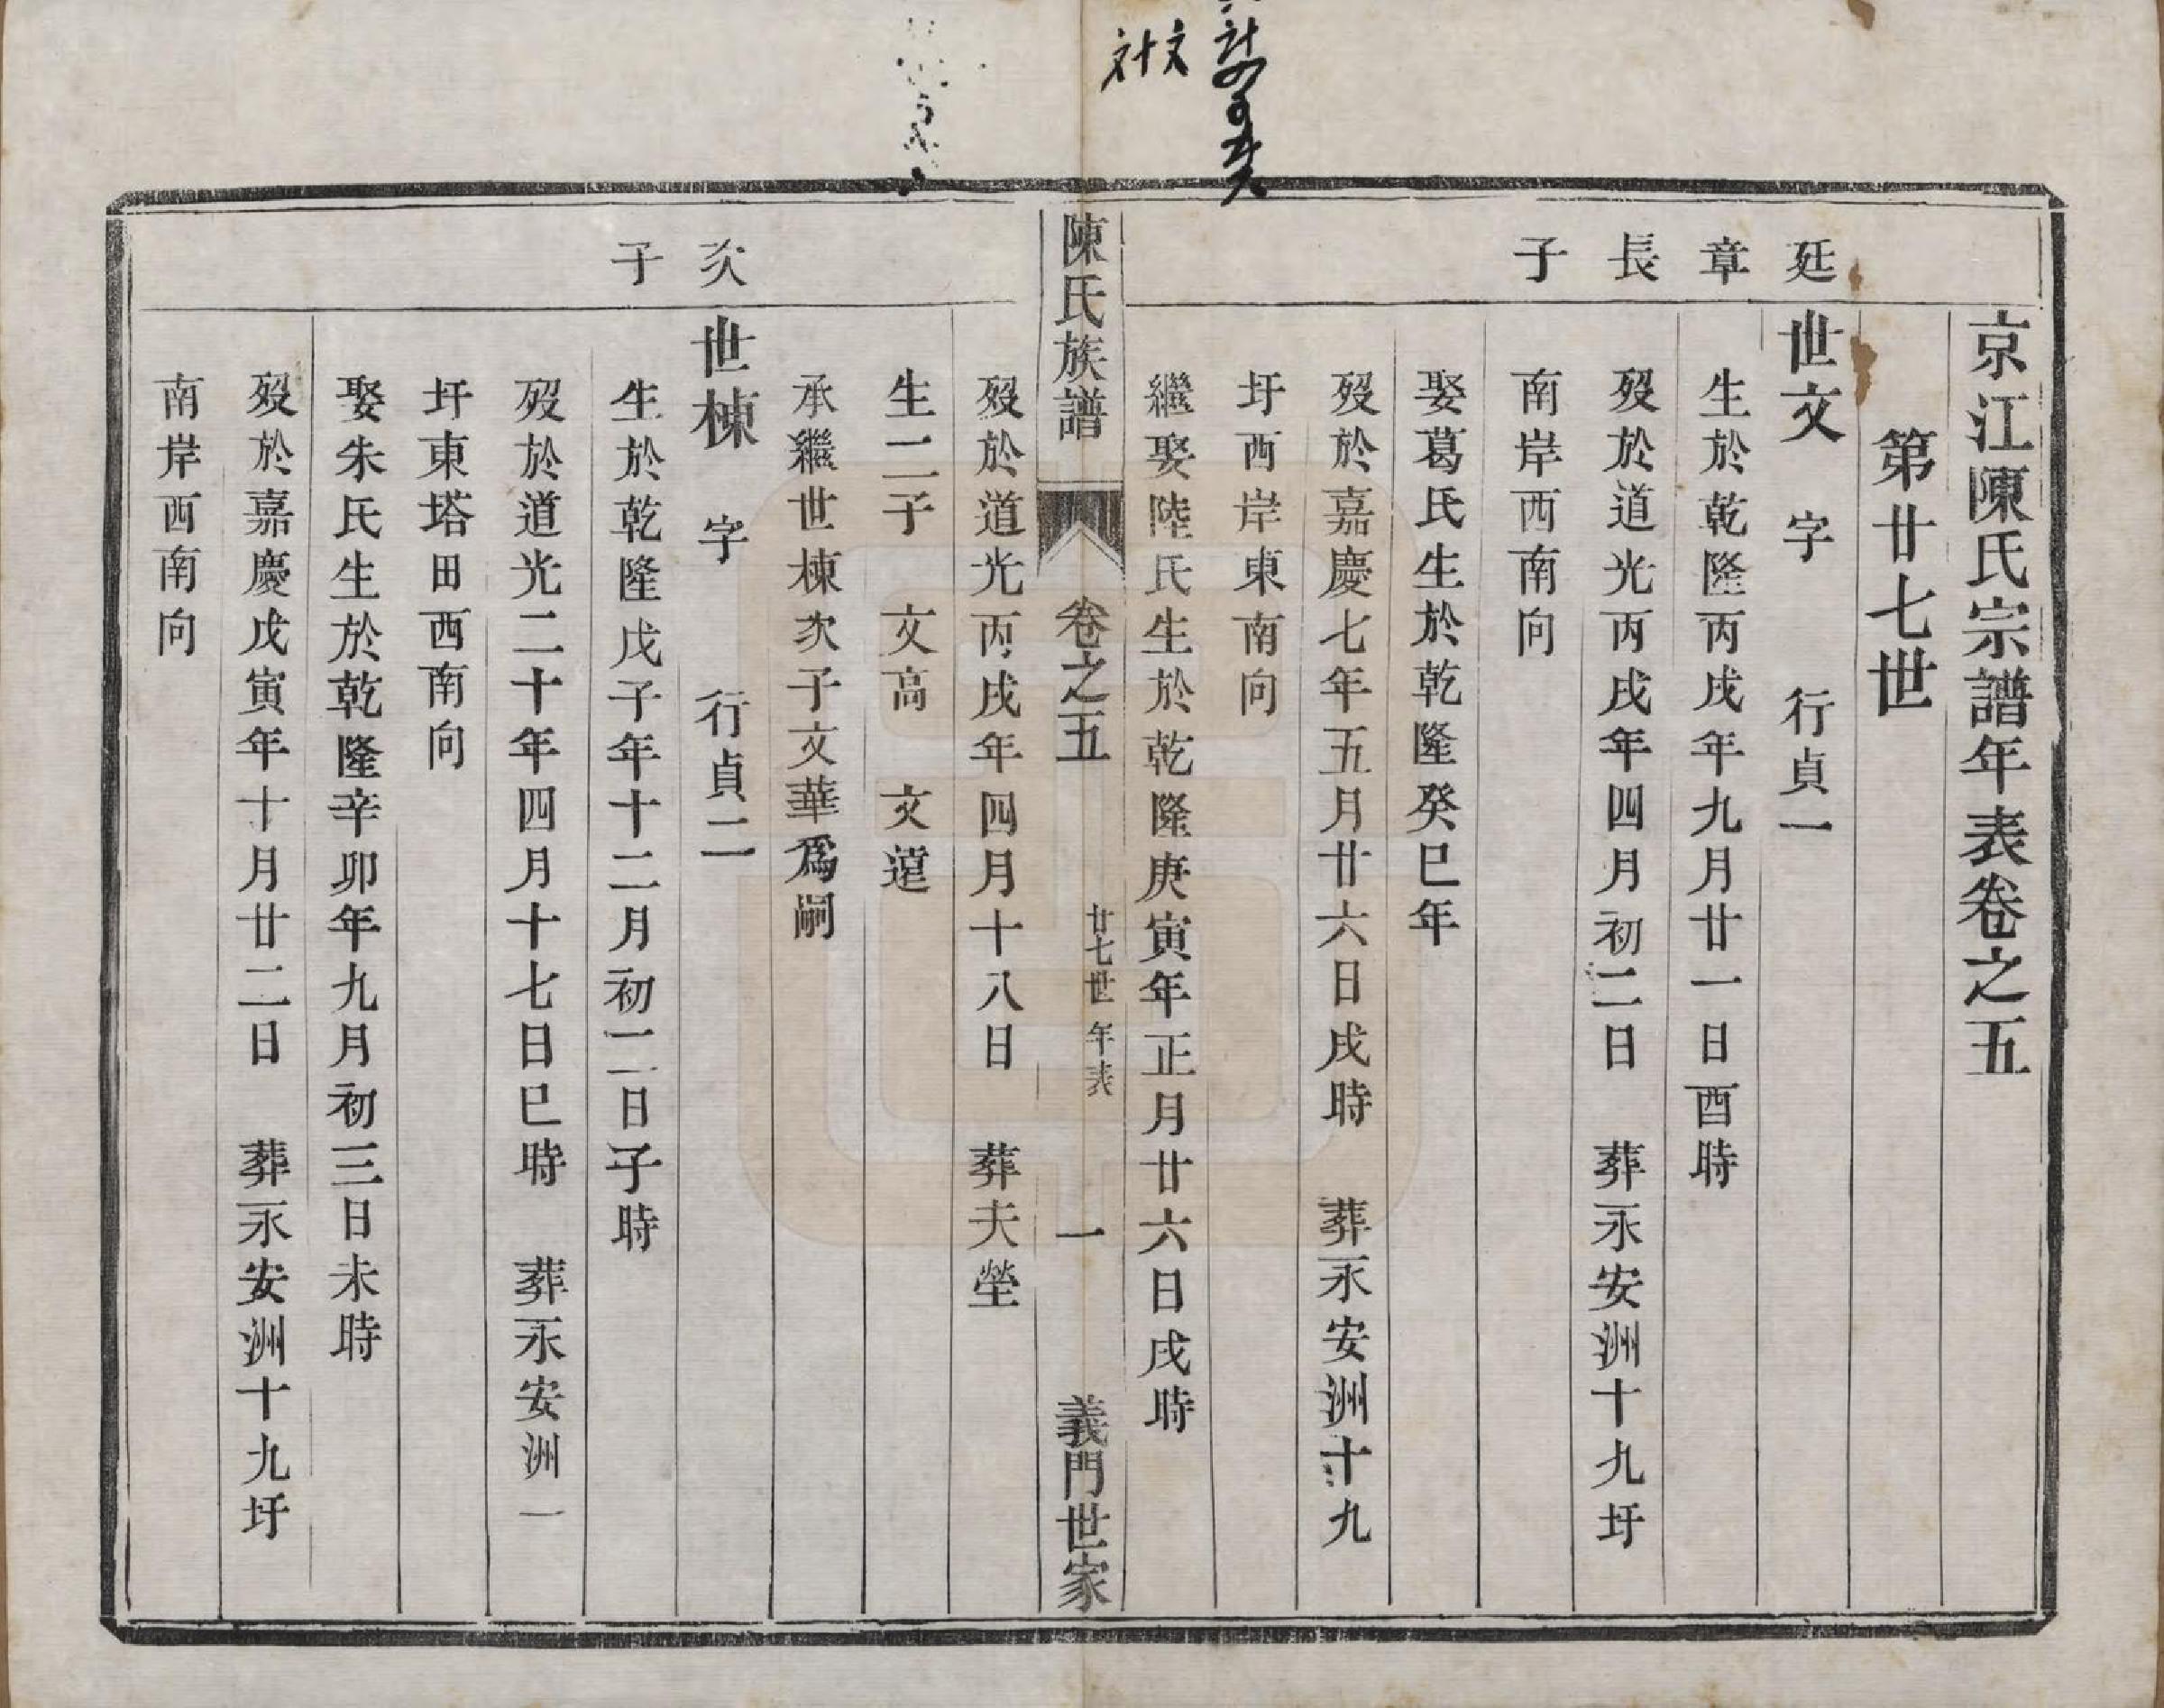 京江陳氏宗譜年表卷之五
第廿七世
廷章長子
世文　字　　行貞一
生於乾隆丙戌年九月廿一日酉時
歿於道光丙戌年四月初二日　葬永安洲十九圩
南岸西南向
娶葛氏生於乾隆癸巳年
歿於嘉慶七年五月廿六日戌時　葬永安洲十九
圩西岸東南向
繼娶陸氏生於乾隆庚寅年正月廿六日戌時
陳氏族譜　卷之五　廿七世年表　一　義門世家
歿於道光丙戌年四月十八日　葬夫塋
生二子　文高　文薳
承繼世棟次子文華爲嗣
次子
世棟　字　　行貞二
生於乾隆戊子年十二月初二日子時
歿於道光二十年四月十七日巳時　葬永安洲一
圩東塔田西南向
娶朱氏生於乾隆辛卯年九月初三日未時
歿於嘉慶戊寅年十月廿二日　葬永安洲十九圩
南岸西南向